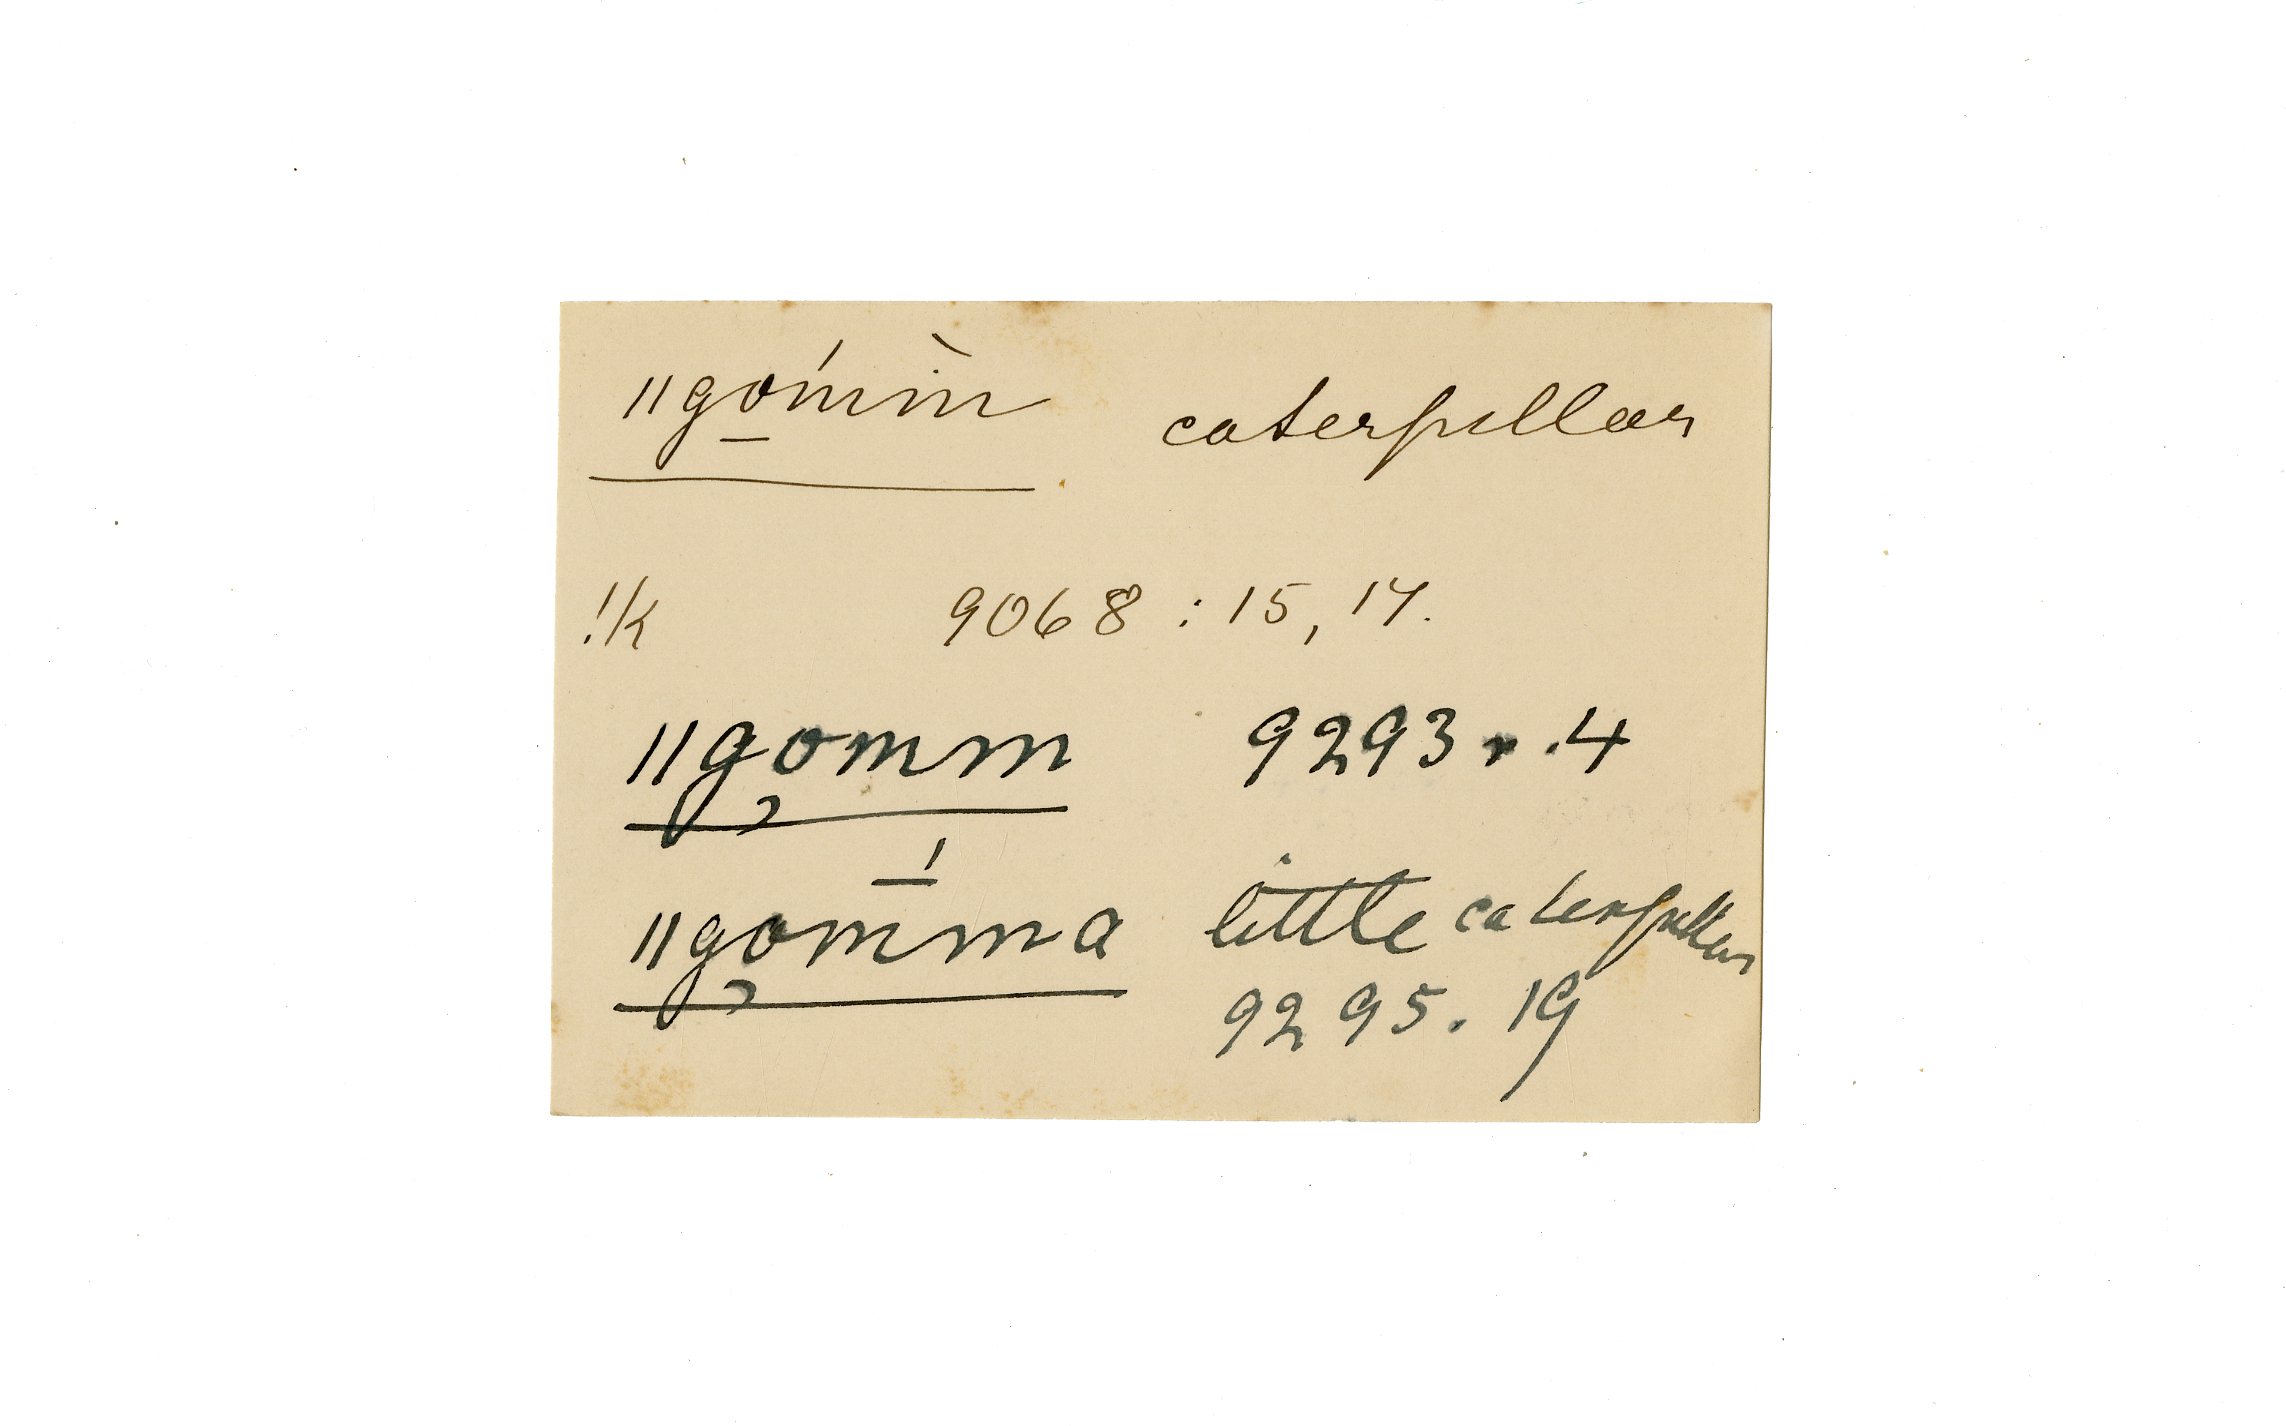 ǁgo̱ḿm̀ caterpillar
!k 9068 : 15, 17.
ǁgo̦mm 9293 . .4
ǁgo̦m̄́ma little caterpillar
9295. 19